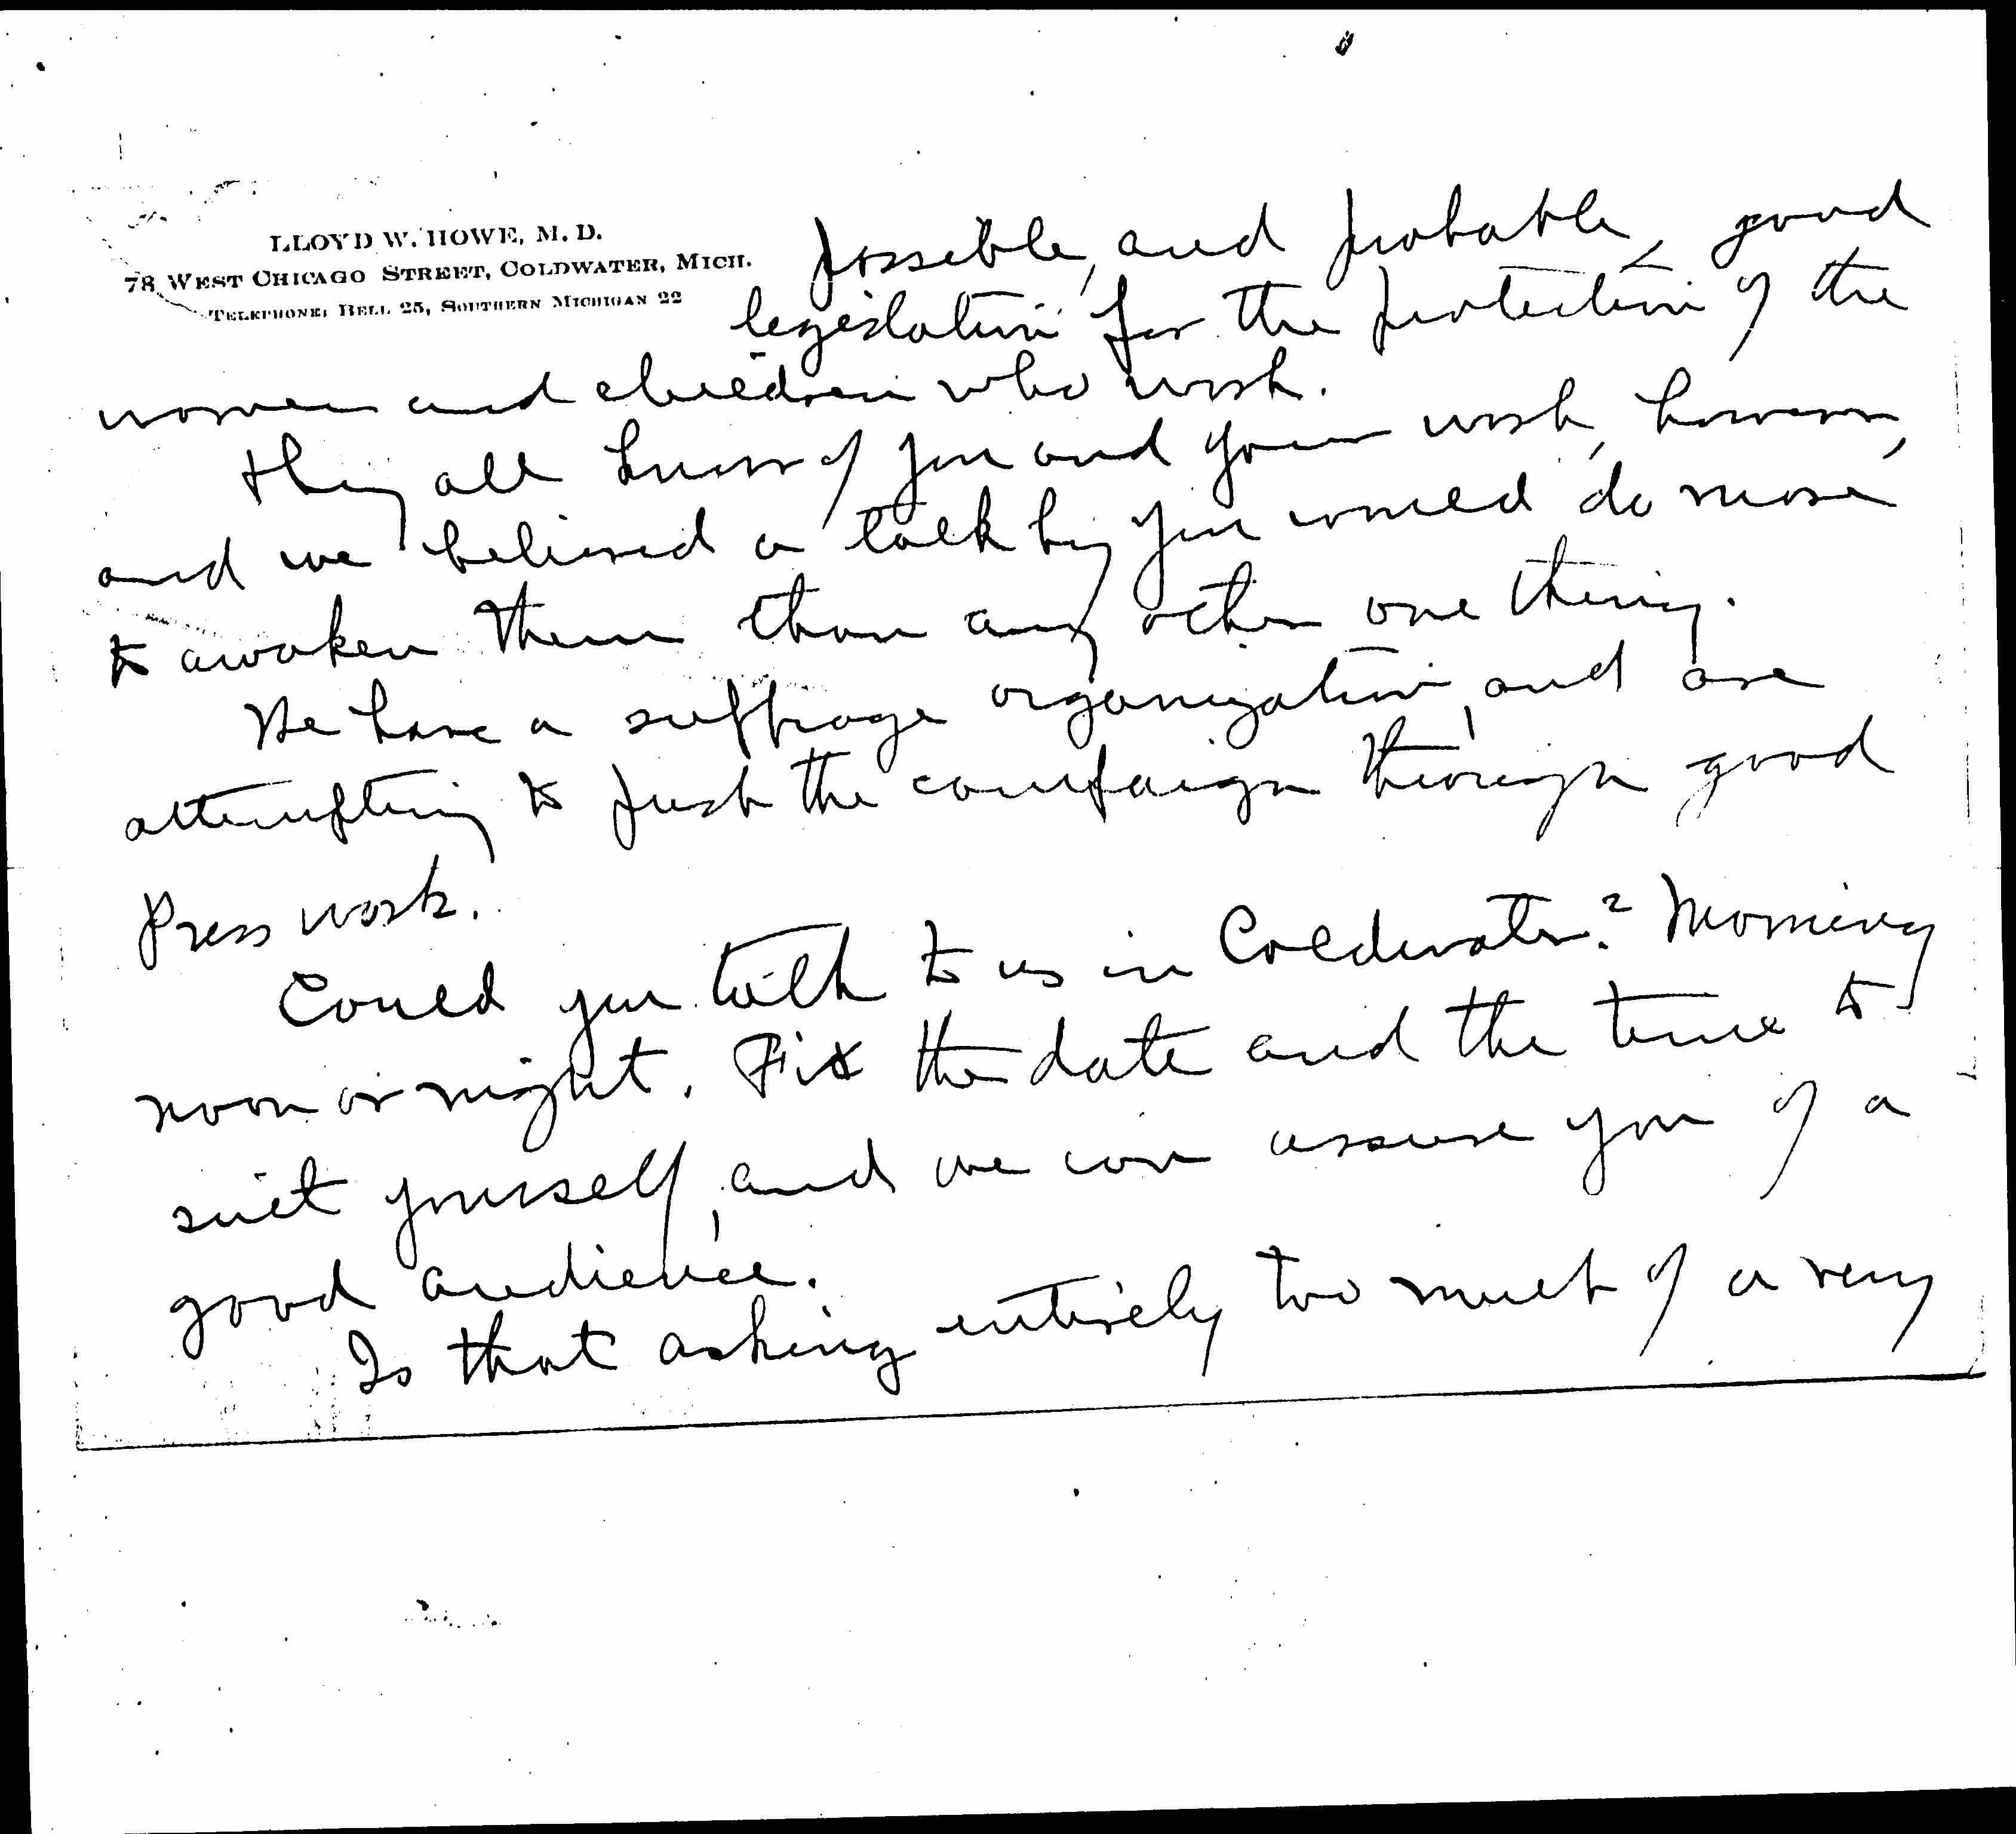 LLOYD W. HOWE, M. D.
78 WEST CHICAGO STREET, COLDWATER, MICH.
TELEPHONE: BELL 25, SOUTHERN MICHIGAN 22
possible, and probable, good
legislation for the protection of the
women and children who work.
they all know of you and your work, however,
and we believed a talk by you would do more
to awaken them than any other one thing.
We have a suffrage organization, and are
attempting to push the campaign through good
Press work.
Could you talk to us in Coldwater? Morning
noon or night. Fix the date and the time to
suit yourself, and we can assure you of a
good audience.
Is that asking entirely too much of a very